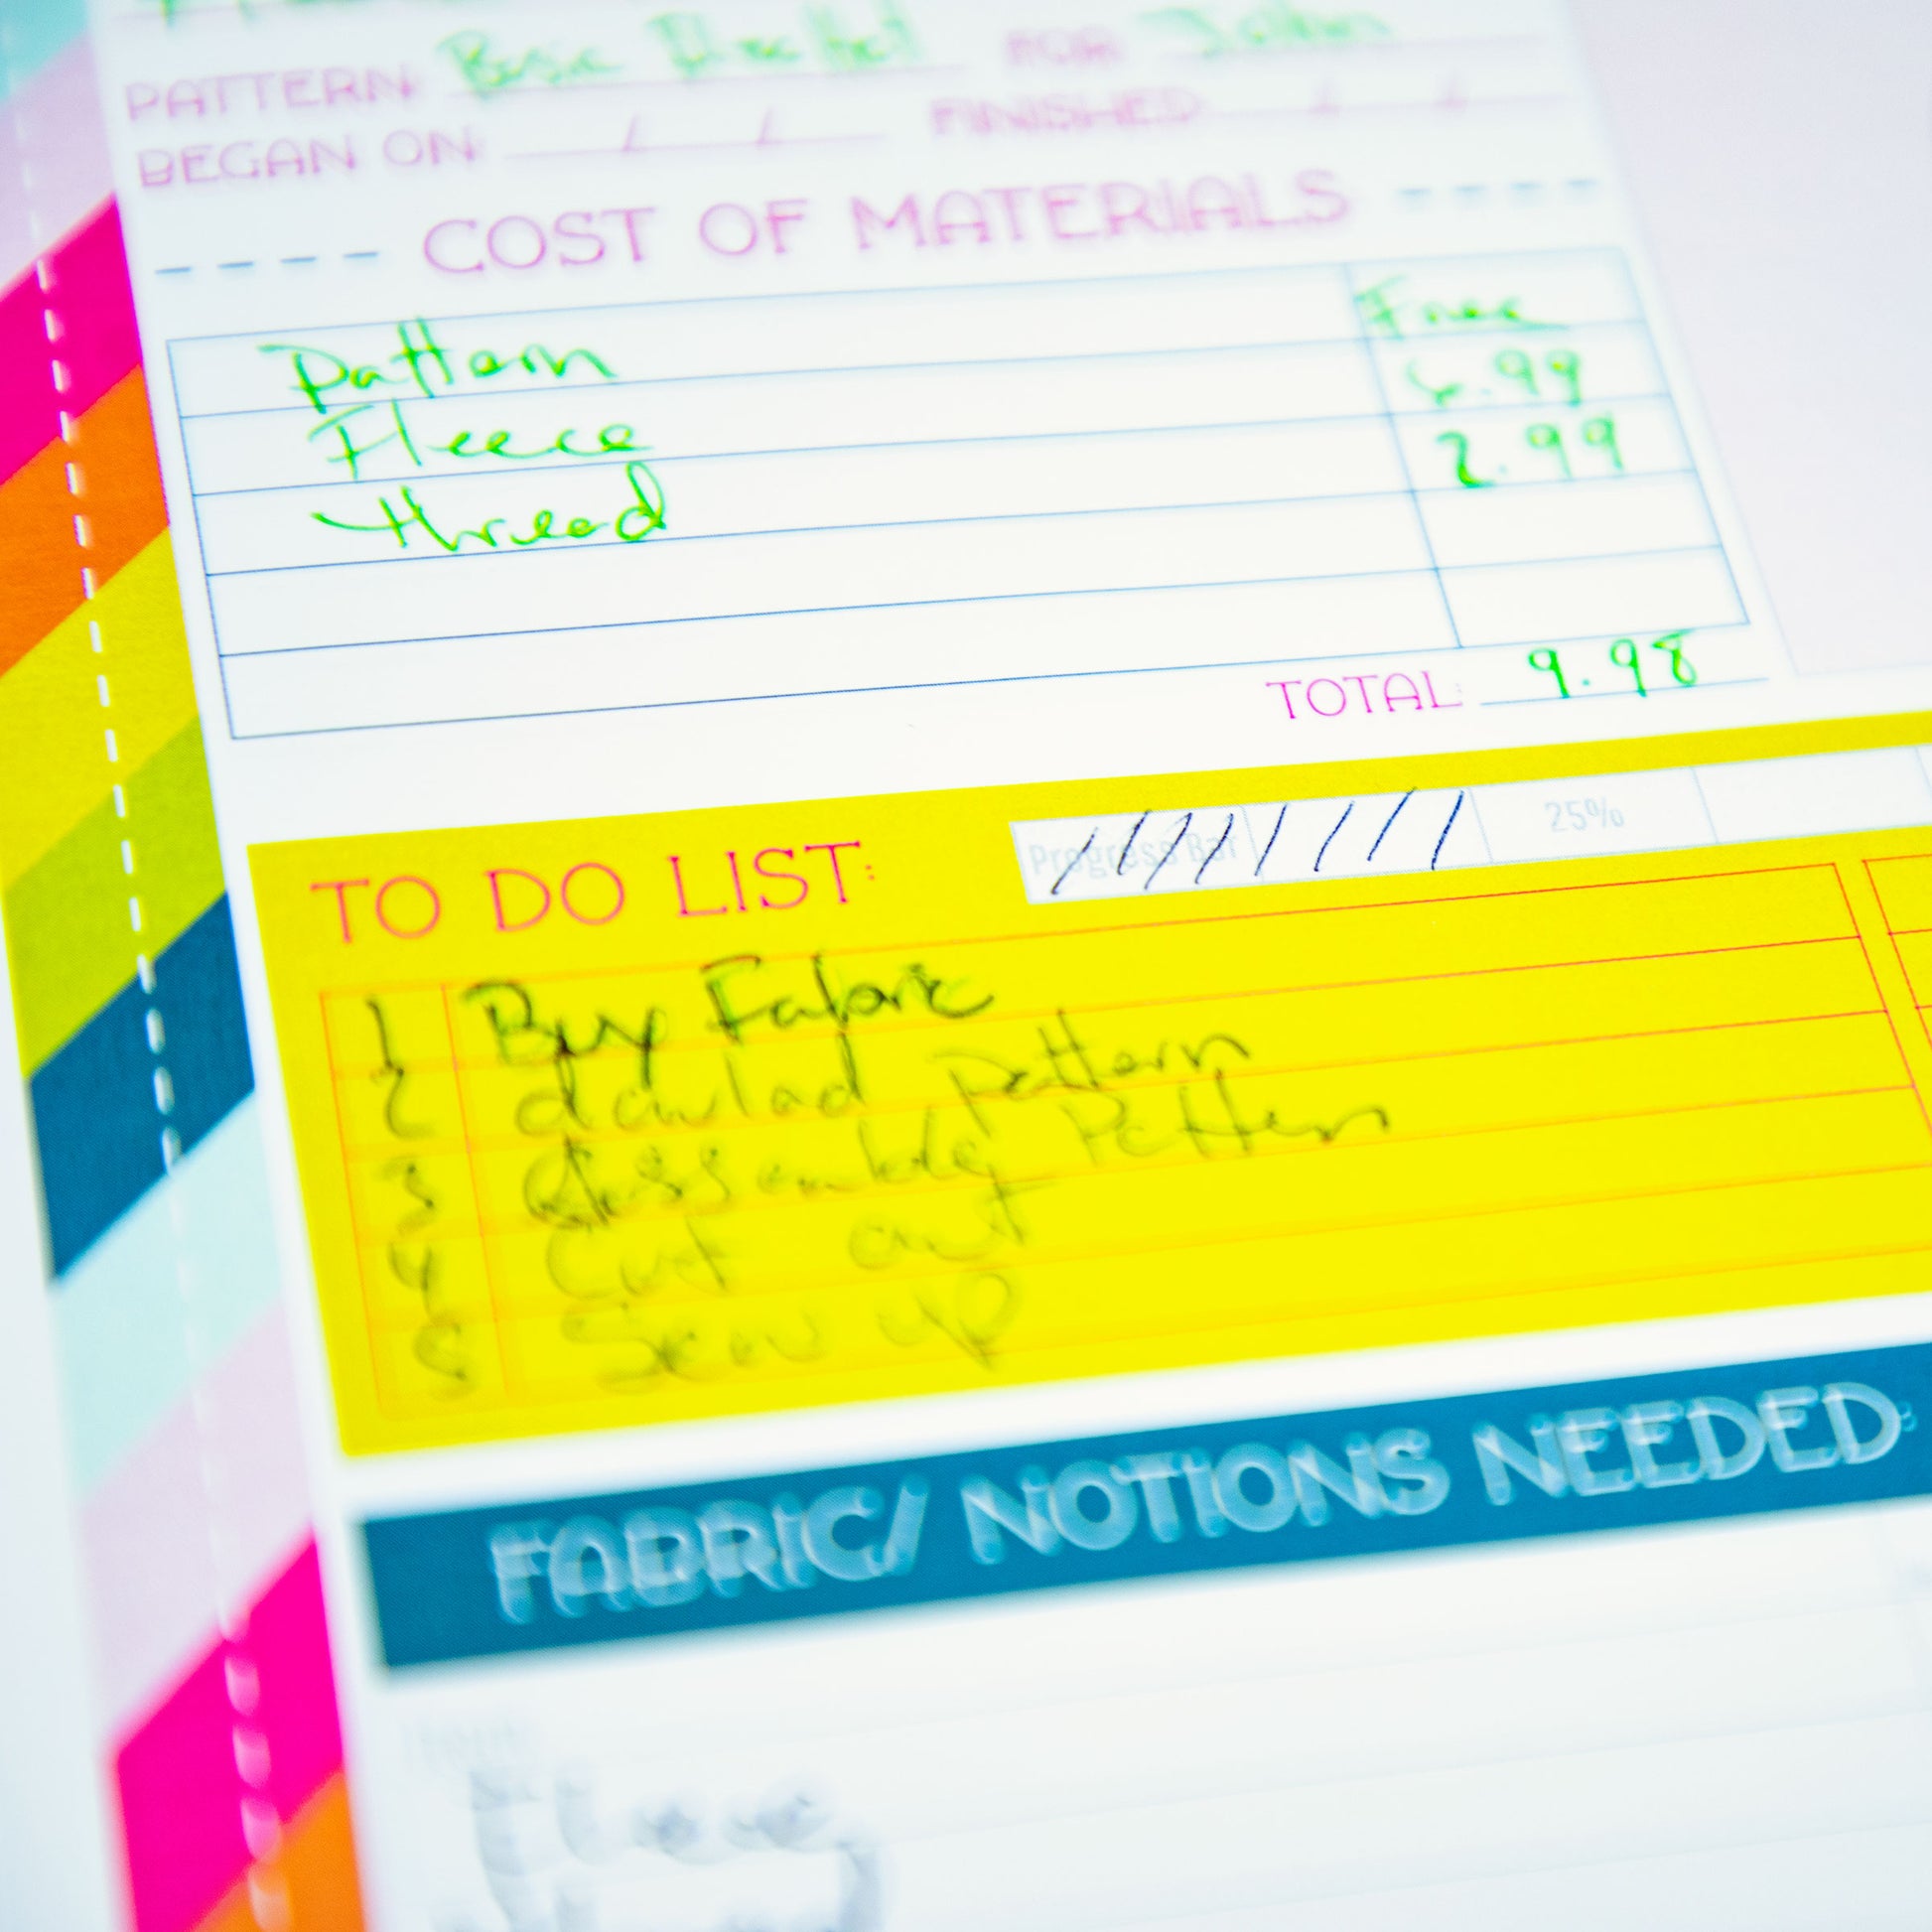 PATTERN: Basic FOR
BEGAN ON: / / FINISHED: / /
COST OF MATERIALS
Pattern Free
Fleece 6.99
thread 2.99
TOTAL: 9.98
TO DO LIST: Progress Bar 25%
1 Buy Fabric
2 dowlad Pattern
3 Assemble Pattern
4 Cut out
5 Sew up
FABRIC/ NOTIONS NEEDED: